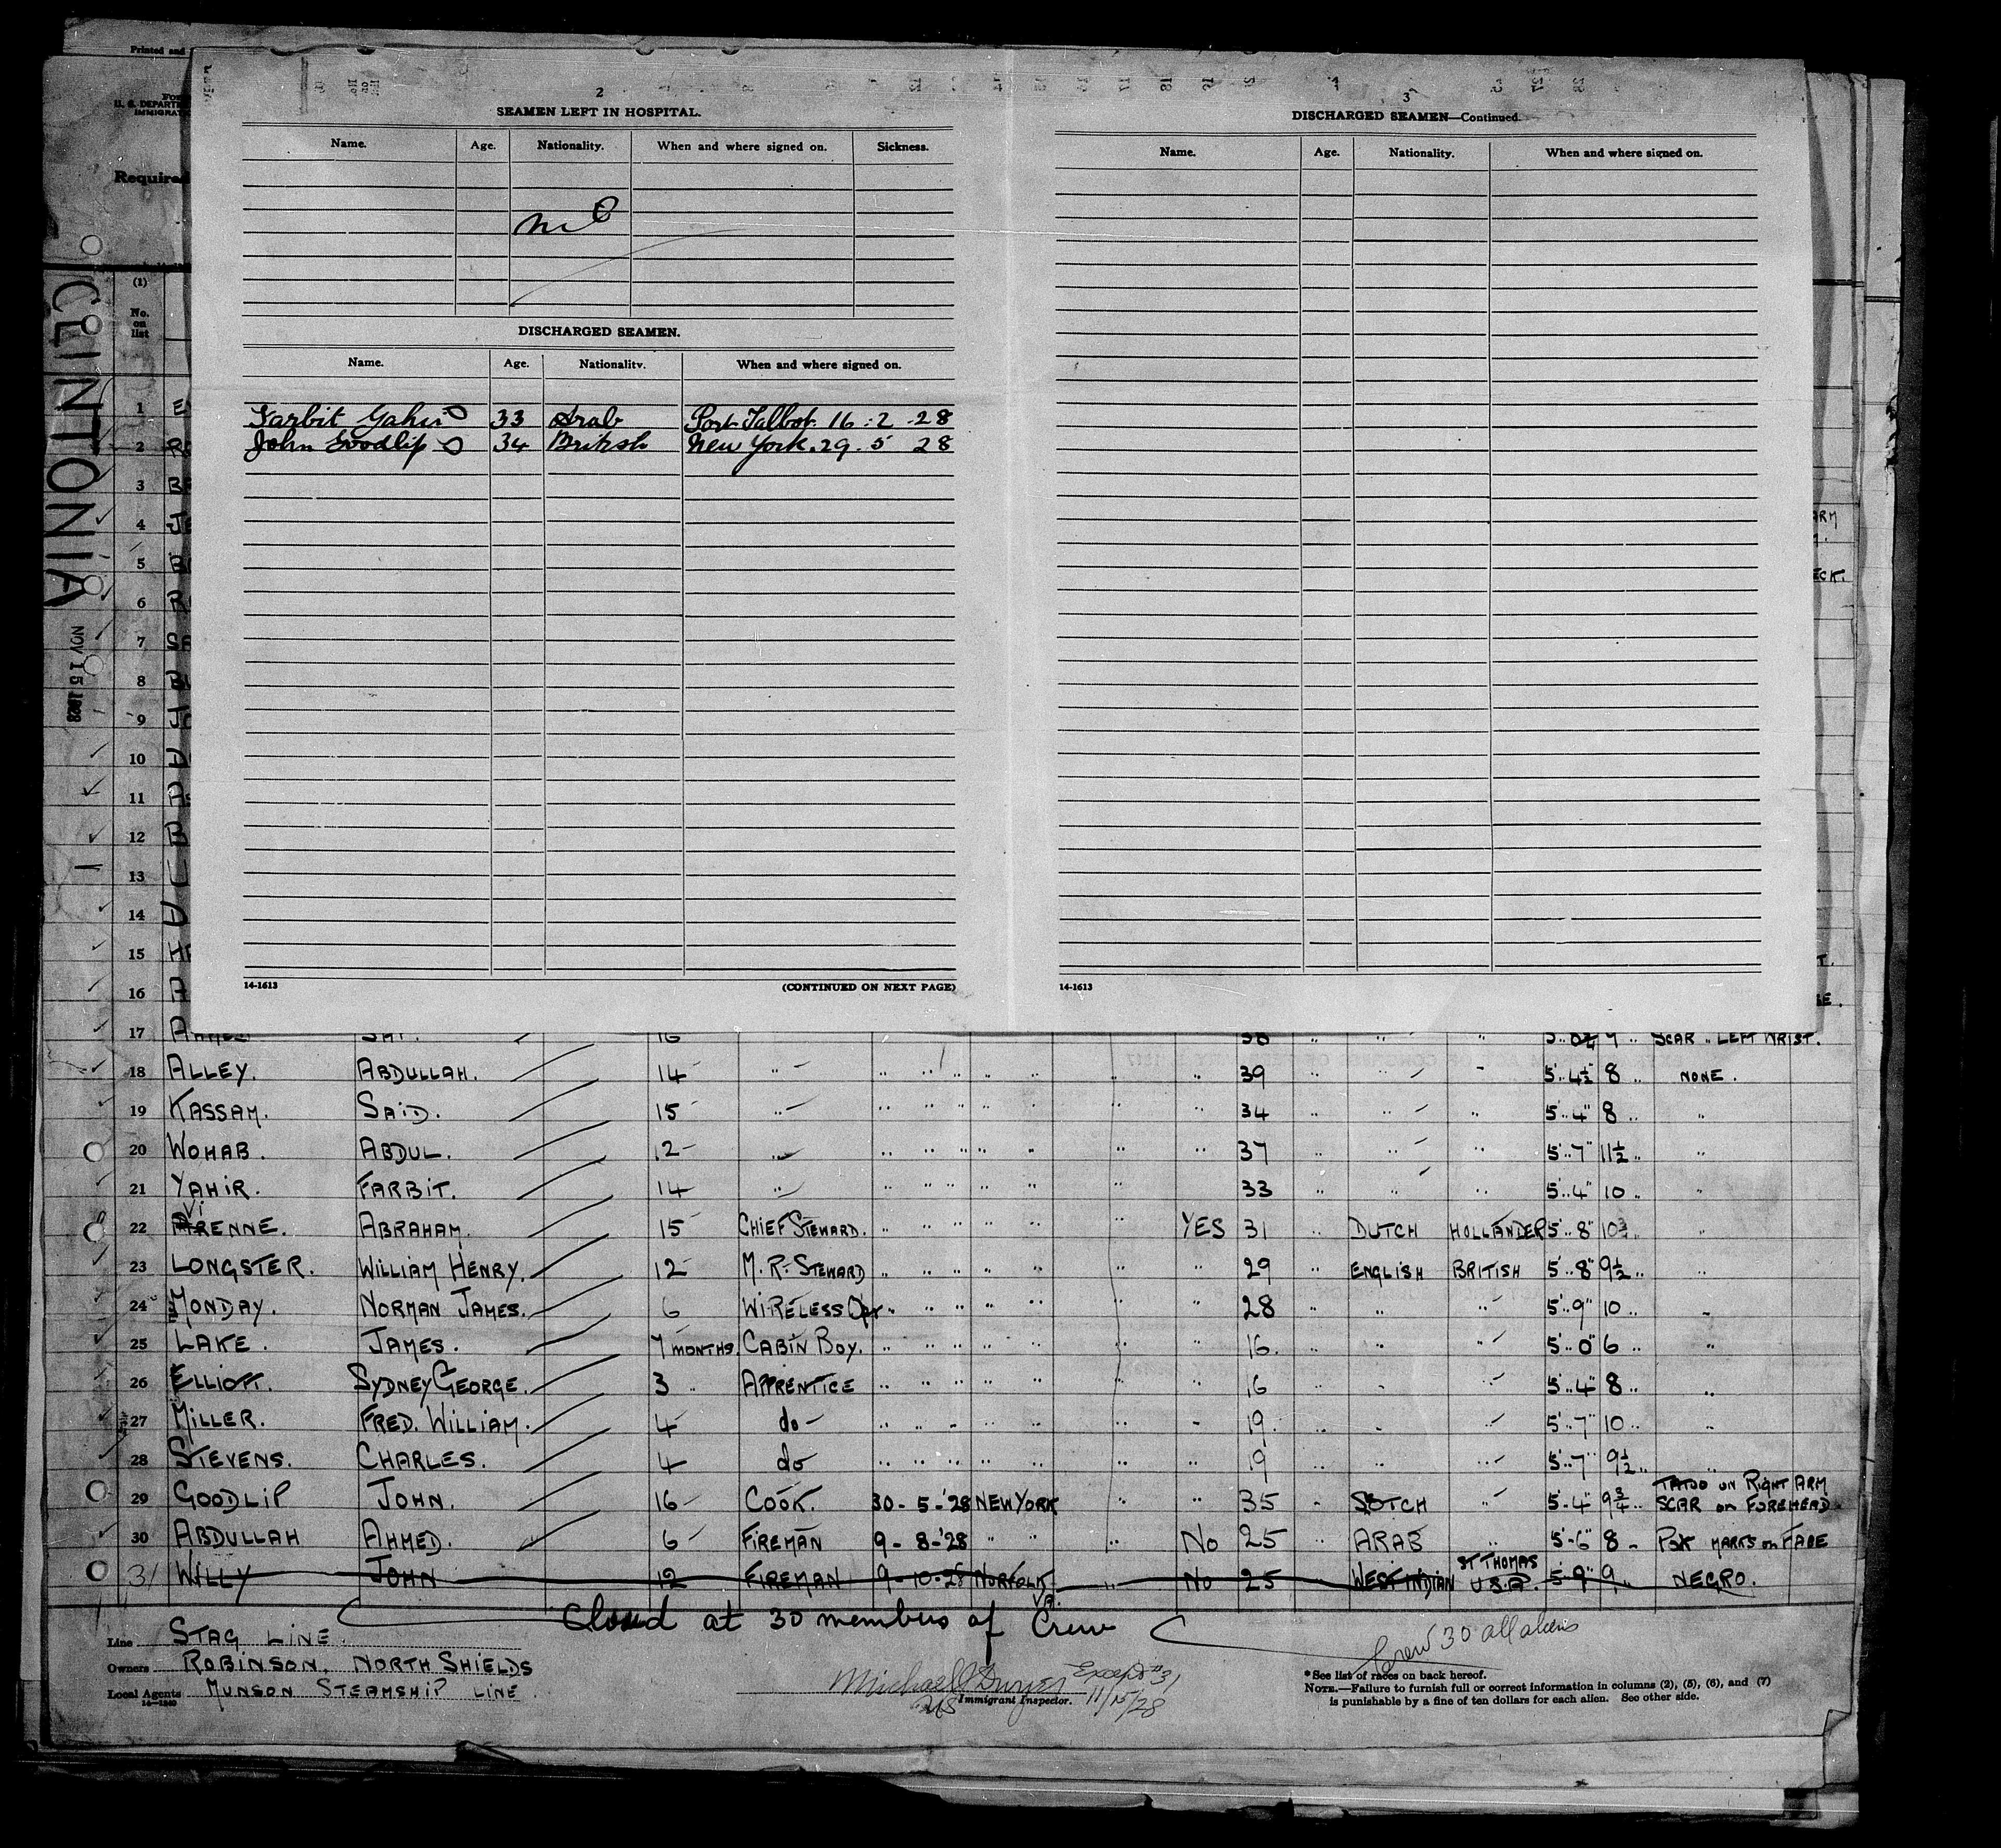 Printed and
U. S. DEPART
IMMIGRAT
Required
2
SEAMEN LEFT IN HOSPITAL.
Name. Age. Nationality. When and where signed on. Sickness.
nil
DISCHARGED SEAMEN.
Name. Age. Nationality. When and where signed on.
Farbit Yahir 33 Arab Port Talbot. 16.2.28
John Goodlip 34 British New York. 29.5 28
14-1613 (CONTINUED ON NEXT PAGE)
3
DISCHARGED SEAMEN—Continued.
Name. Age. Nationality. When and where signed on.
14-1613
CLINTONIA
NOV 15 1928
(1)
No. on list
1
2
3
4
5
6
7
8
9
10
11
12
13
14
15
16
17 SCAR .. LEFT WRIST.
18 ALLEY. ABDULLAH. 14 .. .. .. .. .. .. .. .. .. 39 .. .. .. 5..4½" 8 .. NONE.
19 KASSAM. SAID. 15 .. .. .. .. .. .. .. .. 34 .. .. .. 5..4" 8 .. ..
20 WOHAB. ABDUL. 12 .. .. .. .. .. .. .. .. 37 .. .. .. 5..7" 11½ .. ..
21 YAHIR. FARBIT. 14 .. .. .. .. .. .. .. 33 .. .. .. 5..4" 10 .. ..
22 VIRENNE. ABRAHAM. 15 CHIEF STEWARD. .. .. .. .. .. .. YES 31 .. DUTCH HOLLANDER 5..8" 10¾ ..
23 LONGSTER. WILLIAM HENRY. 12 M.R. STEWARD .. .. .. .. .. .. .. 29 .. ENGLISH BRITISH 5..8" 9½ .. ..
24 MONDAY. NORMAN JAMES. 6 WIRELESS Opr .. .. .. .. .. .. .. 28 .. .. .. 5..9" 10 .. ..
25 LAKE. JAMES. 7 MONTHS. CABIN BOY. .. .. .. .. .. .. .. 16. .. .. .. 5..0" 6 ..
26 ELLIOTT. SYDNEY GEORGE. 3 .. APPRENTICE .. .. .. .. .. .. .. 16 .. .. .. 5..4" 8 .. ..
27 MILLER. FRED. WILLIAM. 4 do .. .. .. .. .. .. .. 19. .. .. .. 5..7" 10 .. ..
28 STEVENS. CHARLES. 4 do .. .. .. .. .. .. .. 19 .. .. .. 5..7" 9½ .. ..
29 GOODLIP JOHN. 16 COOK. 30-5-'28 NEW YORK .. .. 35 .. SCOTCH .. 5-4" 9¾ .. TATOO on RIGHT ARM SCAR on FOREHEAD
30 ABDULLAH AHMED. 6 FIREMAN 9-8-'28 .. .. .. No 25 .. ARAB .. 5-6" 8 - POCK MARKS on FACE
31 WILLY JOHN 12 FIREMAN 9-10-28 NORFOLK VA. .. No 25 WEST INDIAN ST THOMAS U.S.A. 5-9" 9 .. NEGRO.
Closed at 30 members of Crew
Crew 30 all aliens
Line STAG LINE.
Owners ROBINSON, NORTH SHIELDS
Local Agents MUNSON STEAMSHIP LINE
Michael J Dwyer Except #31
Immigrant Inspector. 11/15/28
*See list of races on back hereof.
NOTE.—Failure to furnish full or correct information in columns (2), (5), (6), and (7)
is punishable by a fine of ten dollars for each alien. See other side.